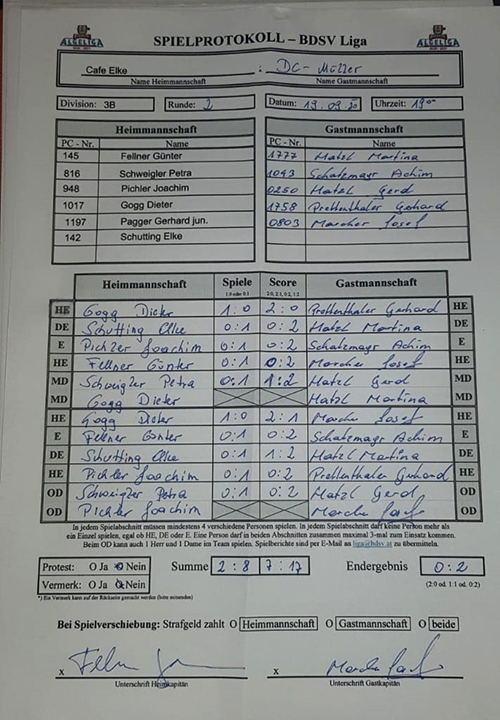 ALGELIGA SPIELPROTOKOLL – BDSV Liga ALGELIGA
Cafe Elke : DC- Müller
Name Heimmannschaft Name Gastmannschaft
Division: 3B Runde: 2 Datum: 19.09.20 Uhrzeit: 19⁰⁰
Heimmannschaft Gastmannschaft
PC - Nr. Name PC - Nr. Name
145 Fellner Günter 1777 Matzl Martina
816 Schweigler Petra 1093 Schatzmayr Achim
948 Pichler Joachim 0250 Matzl Gerd
1017 Gogg Dieter 1758 Prettenthaler Gerhard
1197 Pagger Gerhard jun. 0803 Marcher Josef
142 Schutting Elke
Heimmannschaft Spiele Score Gastmannschaft
1:0 oder 0:1 2:0, 2:1, 0:2, 1:2
HE Gogg Dieter 1:0 2:0 Prettenthaler Gerhard HE
DE Schutting Elke 0:1 0:2 Matzl Martina DE
E Pichler Joachim 0:1 0:2 Schatzmayr Achim E
HE Fellner Günter 0:1 0:2 Marcher Josef HE
MD Schweigler Petra 0:1 1:2 Matzl Gerd MD
MD Gogg Dieter Matzl Martina MD
HE Gogg Dieter 1:0 2:1 Marcher Josef HE
E Fellner Günter 0:1 0:2 Schatzmayr Achim E
DE Schutting Elke 0:1 1:2 Matzl Martina DE
HE Pichler Joachim 0:1 0:2 Prettenthaler Gerhard HE
OD Schweigler Petra 0:1 0:2 Matzl Gerd OD
OD Pichler Joachim Marcher Josef OD
In jedem Spielabschnitt müssen mindestens 4 verschiedene Personen spielen. In jedem Spielabschnitt darf keine Person mehr als
ein Einzel spielen, egal ob HE, DE oder E. Eine Person darf in beiden Abschnitten zusammen maximal 3-mal zum Einsatz kommen.
Beim OD kann auch 1 Herr und 1 Dame im Team spielen. Spielberichte sind per E-Mail an liga@bdsv.at zu übermitteln.
Protest: O Ja O Nein Summe 2:8 7:17 Endergebnis 0:2
Vermerk: O Ja O Nein (2:0 od. 1:1 od. 0:2)
*) Ein Vermerk kann auf der Rückseite gemacht werden (bitte ankreuzen)
Bei Spielverschiebung: Strafgeld zahlt O Heimmannschaft O Gastmannschaft O beide
x x
Unterschrift Heimkapitän Unterschrift Gastkapitän